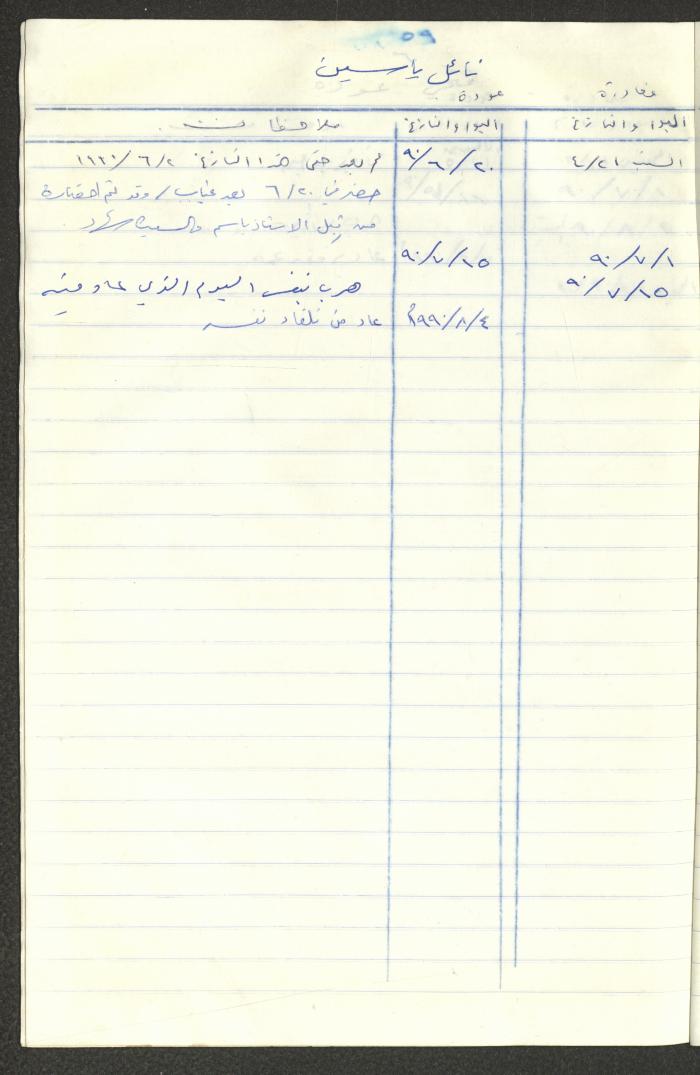 ٥٩
نائل ياسين
مغادرة عودة
اليوم والتاريخ اليوم والتاريخ ملاحظات
السبت ٤/٢١ ٩٠/٦/٢٠ لم يعد حتى هذا التاريخ ١٩٩٠/٦/٢
حضر في ٦/٢٠ بعد غياب / وقد تم احضاره
من قبل الاستاذ باسم والسيد
٩٠/٧/١ ٩٠/٧/١٥
٩٠/٧/١٥ هرب بنفس اليوم الذي عاد فيه
١٩٩٠/٨/٤ عاد من تلقاء نفسه